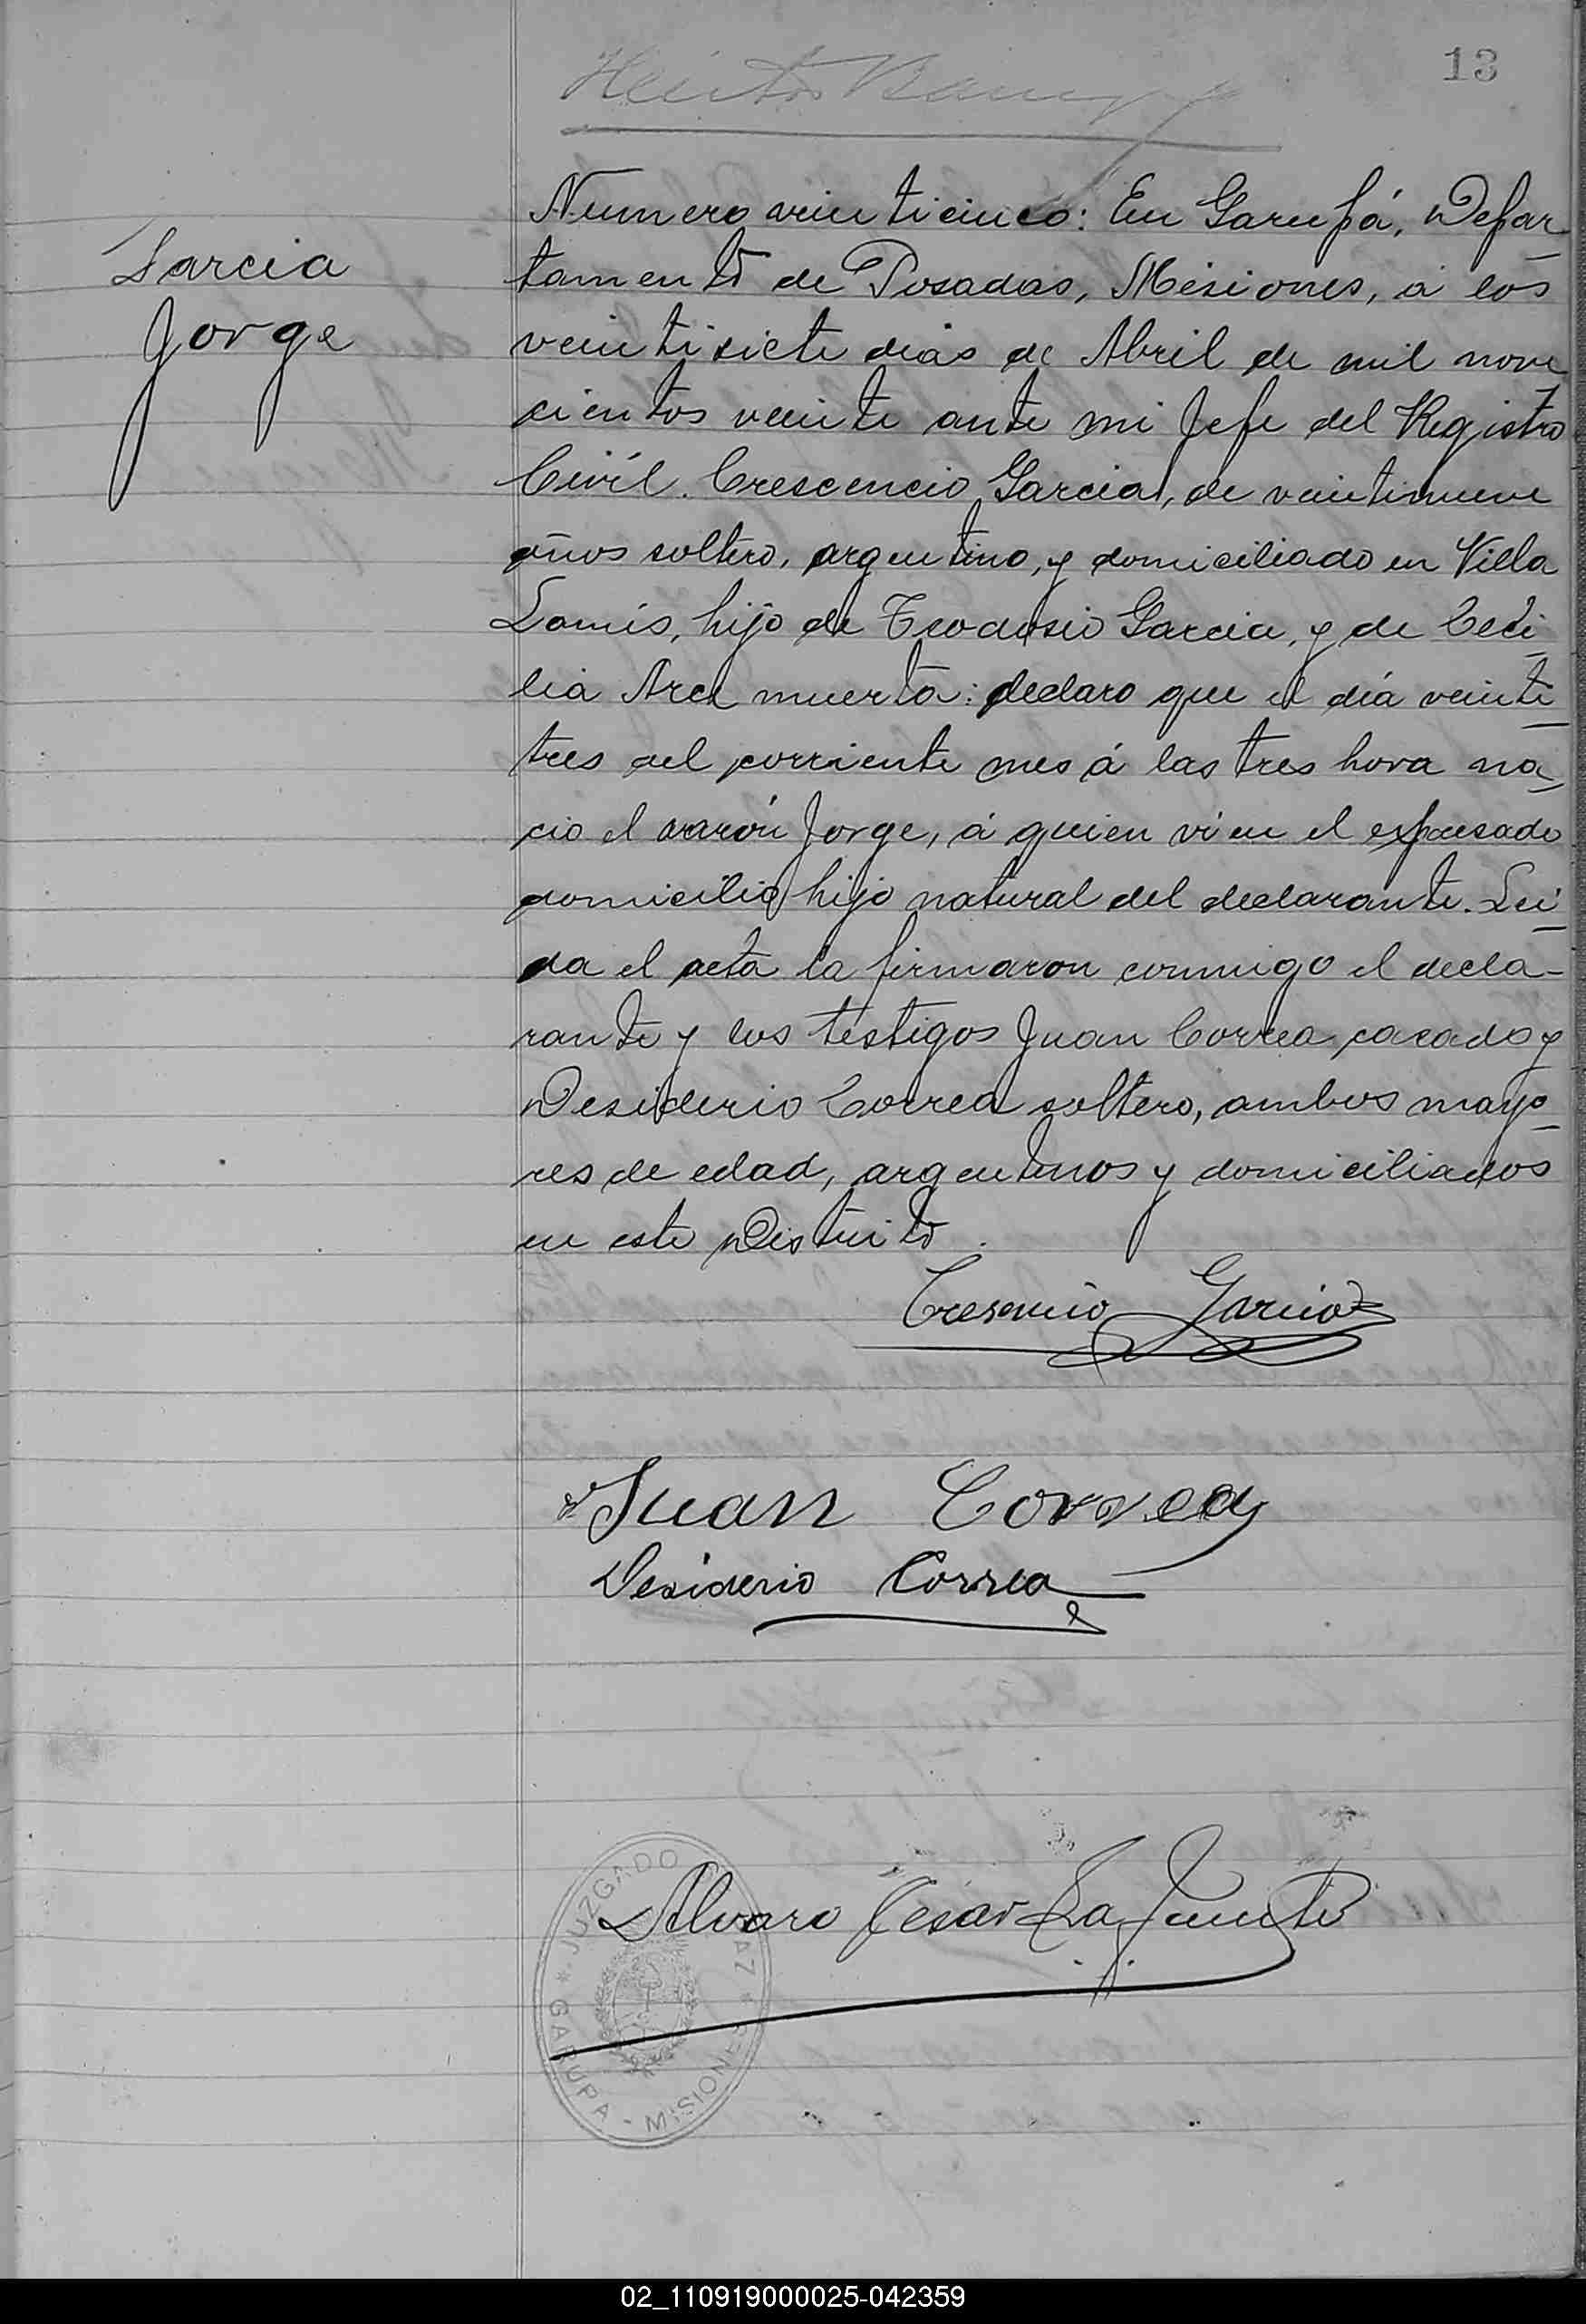 13
Numero veinticinco: En Garupá, Depar
Garcia
tamento de Posadas, Misiones, á los
Jorge
veintisiete dias de Abril de mil nove
cientos veinte ante mi Jefe del Registro
Civil. Crescencio Garcia, de veintinueve
años soltero, argentino, y domiciliado en Villa
Lanús, hijo de Teodosio Garcia, y de Ceci
lia Arce muerta: declaro que el día veinti
tres del corriente mes á las tres hora na
cio el varón Jorge, á quien vi en el expresado
domicilio hijo natural del declarante. Lei
da el acta la firmaron conmigo el decla-
rante y los testigos Juan Correa, casado y
Desiderio Correa soltero, ambos mayo
res de edad, argentinos y domiciliados
en este Distrito.
Cresencio Garcia
Juan Correa
Desiderio Correa
Alvaro Cesar La Fuente
JUZGADO AZ * MISIONES - GARUPA *
02_110919000025-042359